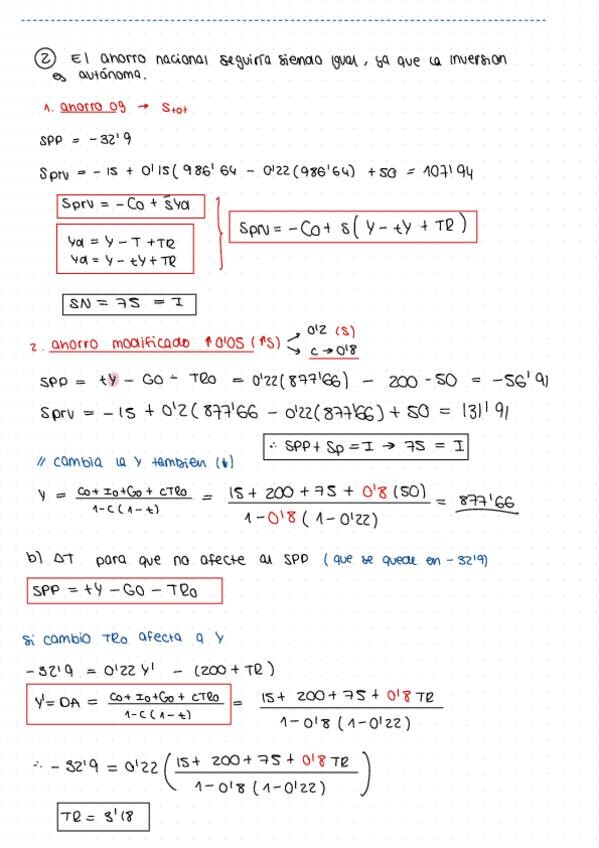 ② El ahorro nacional seguiría siendo igual, ya que la inversion
es autónoma.
1. ahorro og → Stot
SPP = -32'9
Sprv = -15 + 0'15(986'64 - 0'22(986'64) + 50 = 107'94
Sprv = -Co + sYd
Yd = Y - T + TR
Yd = Y - tY + TR
Sprv = -Co + s(Y - tY + TR)
SN = 75 = I
2. ahorro modificado ↑0'05 (↑s)
0'2 (s)
c → 0'8
SPP = tY - Go - TRo = 0'22(877'66) - 200 - 50 = -56'91
Sprv = -15 + 0'2(877'66 - 0'22(877'66) + 50 = 131'91
∴ SPP + Sp = I → 75 = I
// cambia la Y tambien (↓)
Y = Co + Io + Go + cTRo / 1-c(1-t) = 15 + 200 + 75 + 0'8(50) / 1 - 0'8(1 - 0'22) = 877'66
b) ΔT para que no afecte al SPP (que se quede en -32'9)
SPP = tY - Go - TRo
Si cambio TRo afecta a Y
-32'9 = 0'22 Y' - (200 + TR)
Y' = DA = Co + Io + Go + cTRo / 1-c(1-t) = 15 + 200 + 75 + 0'8 TR / 1 - 0'8(1 - 0'22)
∴ -32'9 = 0'22 (15 + 200 + 75 + 0'8 TR / 1 - 0'8(1 - 0'22))
TR = 3'18